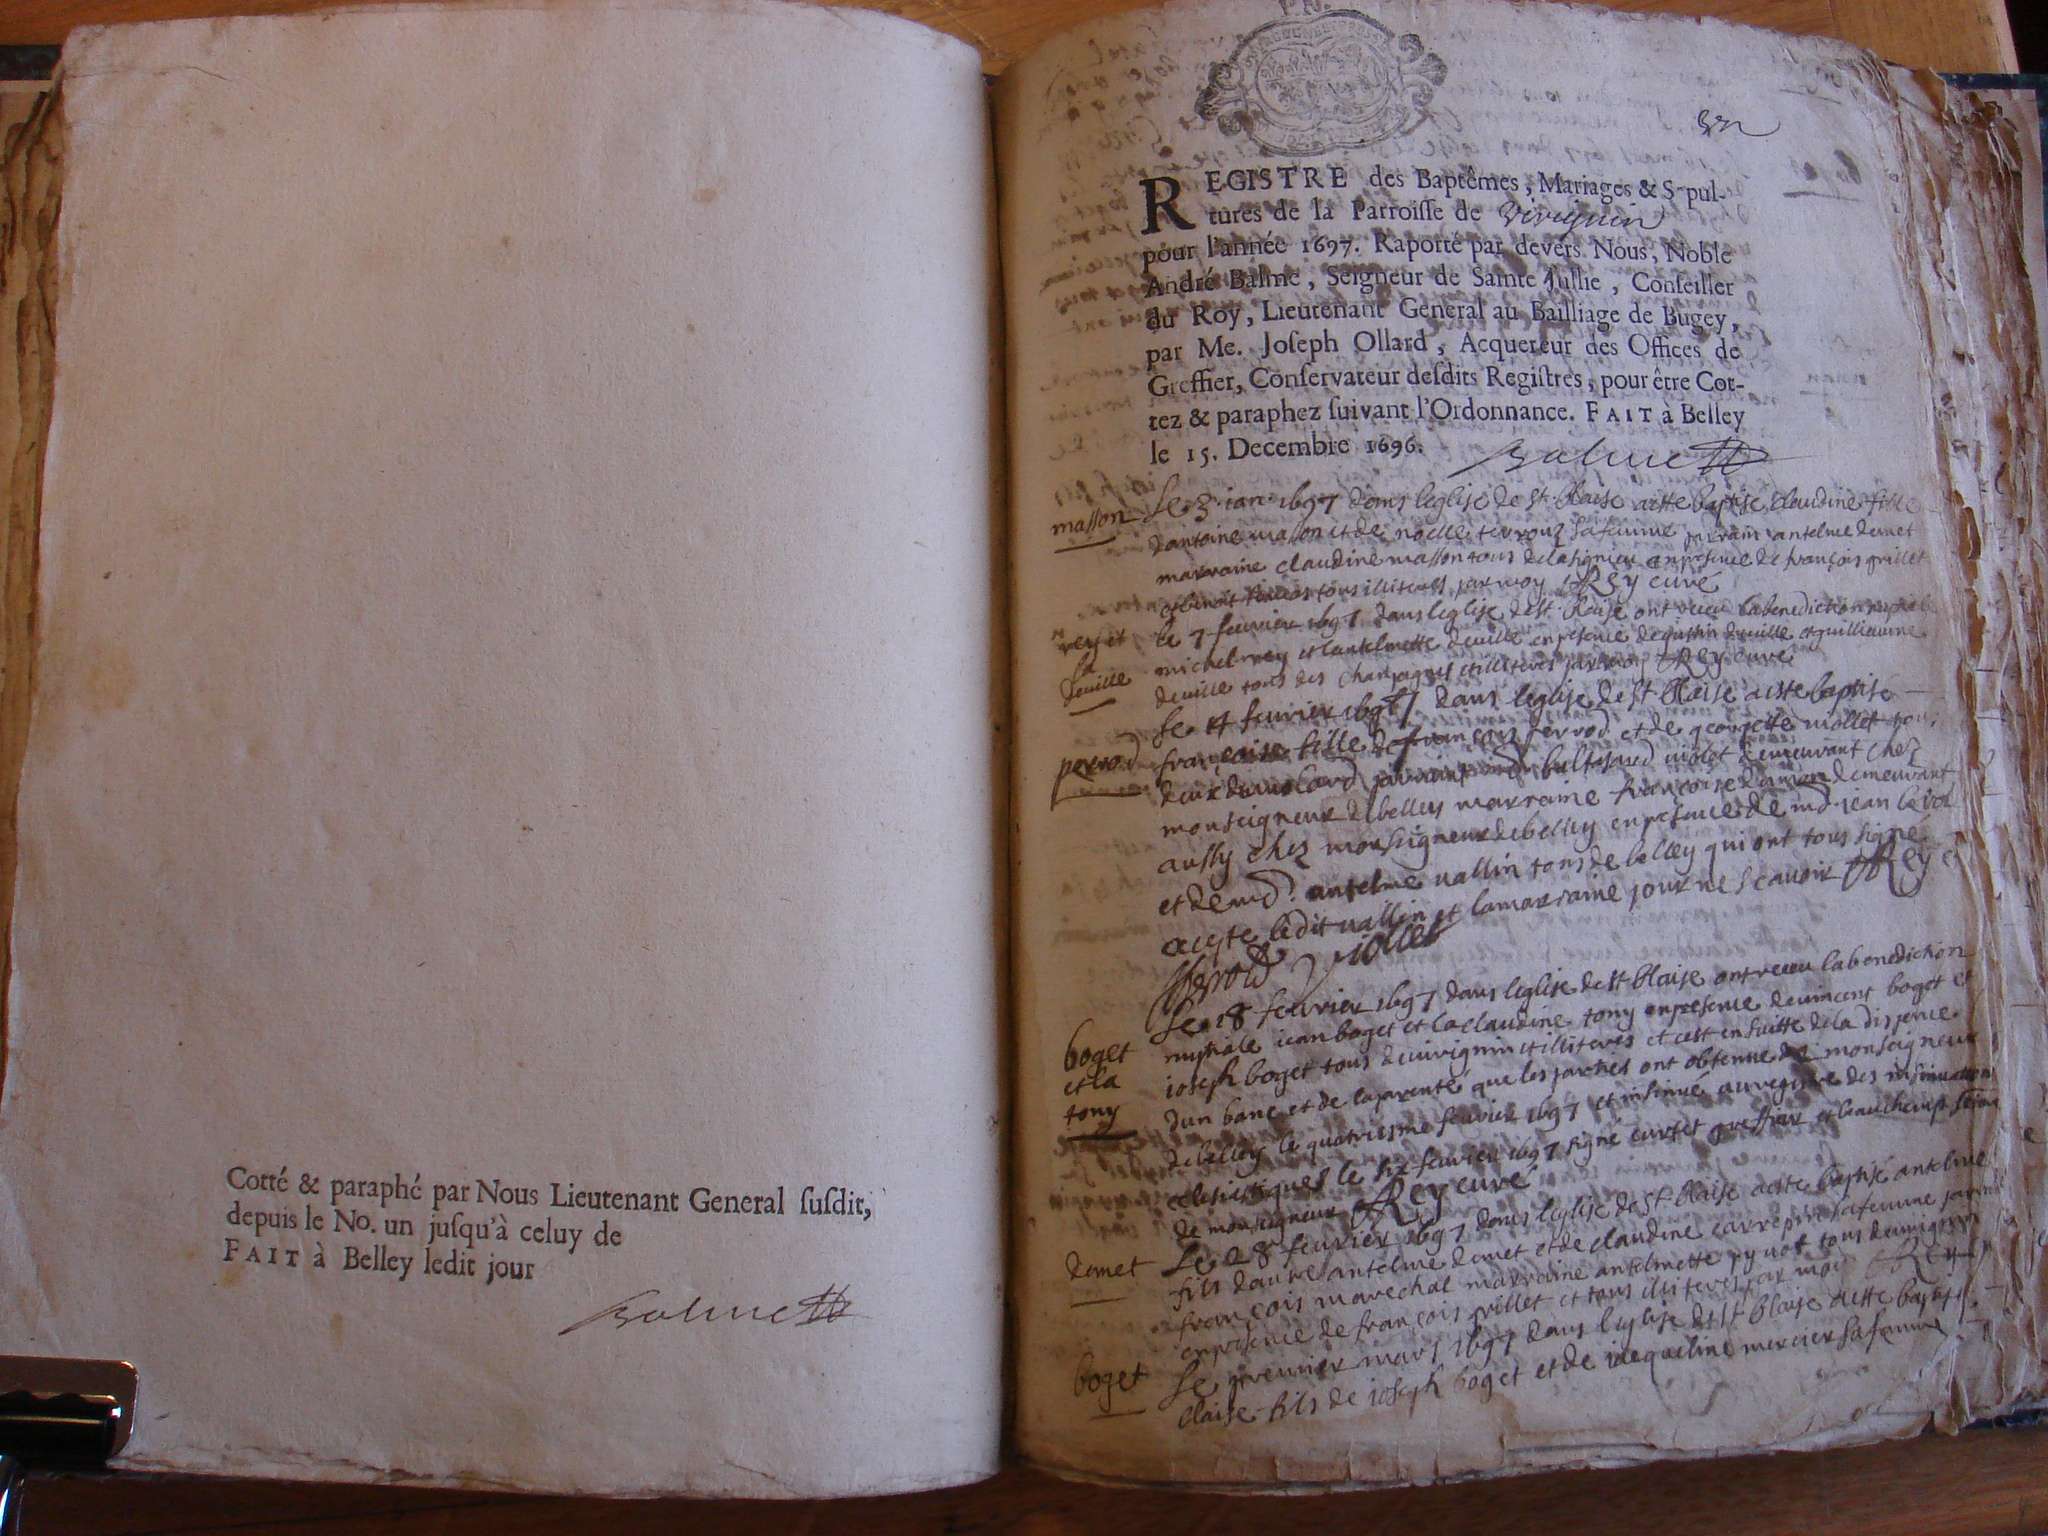 Cotté & paraphé par Nous Lieutenant General ſuſdit,
depuis le No. un juſqu'à celuy de
FAIT à Belley ledit jour
Balme
REGISTRE des Baptêmes, Mariages & Sepul-
tures de la Parroiſſe de Virignin
pour l'année 1697. Raporté par devers Nous, Noble
André Balme, Seigneur de Sainte Jullie, Conſeiller
du Roy, Lieutenant General au Bailliage de Bugey,
par Me. Joſeph Ollard, Acquereur des Offices de
Greffier, Conſervateur deſdits Regiſtres, pour être Cot-
tez & paraphez ſuivant l'Ordonnance. FAIT à Belley
le 15. Decembre 1696.
Balme
masson
Le 3 ianr 1697 dans leglise de st blaise a este baptisé claudine fille
dantoine masson et de noelle sa femme parrain antelme demet
marraine claudine masson tous de en presence de françois grillet
et benoit tous illiteres par moy Rey curé
rey et
la
deville
le 7 feuvrier 1697 dans leglise de st blaise ont receu la benediction nuptiale
michel rey et lantelmette deville en presence de deville et guillieaume
deville tous des champagnes et illiteres par moy Rey curé
perrod
Le 14 feuvrier 1697 dans leglise de st blaise a este baptisé
françoise fille de françois perrod et de georgette mollet tous
deux parrain balthasard violet demeurant chez
monseigneur de belley marraine françoise damon demeurant
aussy chez monseigneur de belley en presence de md jean
et de md. antelme vallin tous de belley qui ont tous signé
excepte ledit vallin et la marraine pour ne scavoir Rey c
perrod violet
boget
et la
tony
Le 18 feuvrier 1697 dans leglise de st blaise ont receu la benediction
nuptiale iean boget et la claudine tony en presence de vincent boget et
ioseph boget tous de virignin et illiteres et cest en suitte de la dispence
dun banc et de la parenté que les parties ont obtenue de monseigneur
de belley le quatriesme feuvrier 1697 et insinué au registre des insinuations
eclesiestiques le six feuvrier 1697 signé greffier et
de monseigneur Rey curé
demet
Le 28 feuvrier 1697 dans leglise de st blaise a este baptisé antelme
fils dautre antelme demet et de claudine sa femme parrain
françois marechal marraine antelmette pyuot tous de virignin
en presence de françois grillet et tous illiteres par moy Rey
boget
Le premier mars 1697 dans leglise de st blaise a este baptisé
claise fils de ioseph boget et de iacqueline mercier sa femme